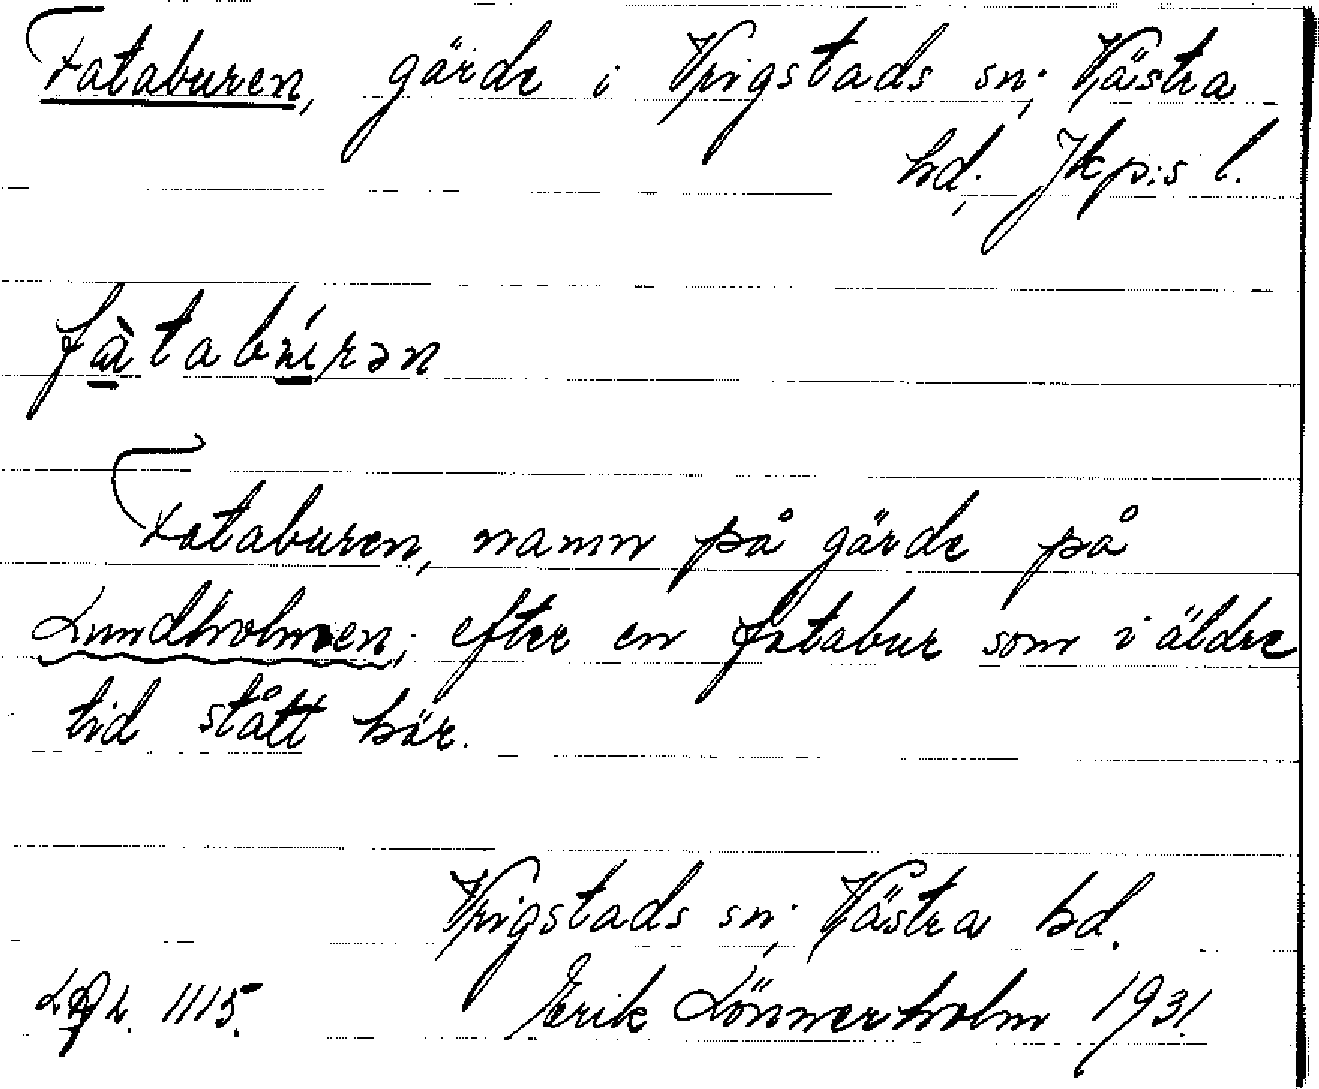 Fataburen, gärde i Vrigstads sn; Västra
hd; Jkp:s l.
fàtabúrən
Fataburen, namn på gärde på
Lundholmen; efter en fatabur som i äldre
tid stått här.
Vrigstads sn; Västra hd.
1115. Erik Lönnerholm 1931.